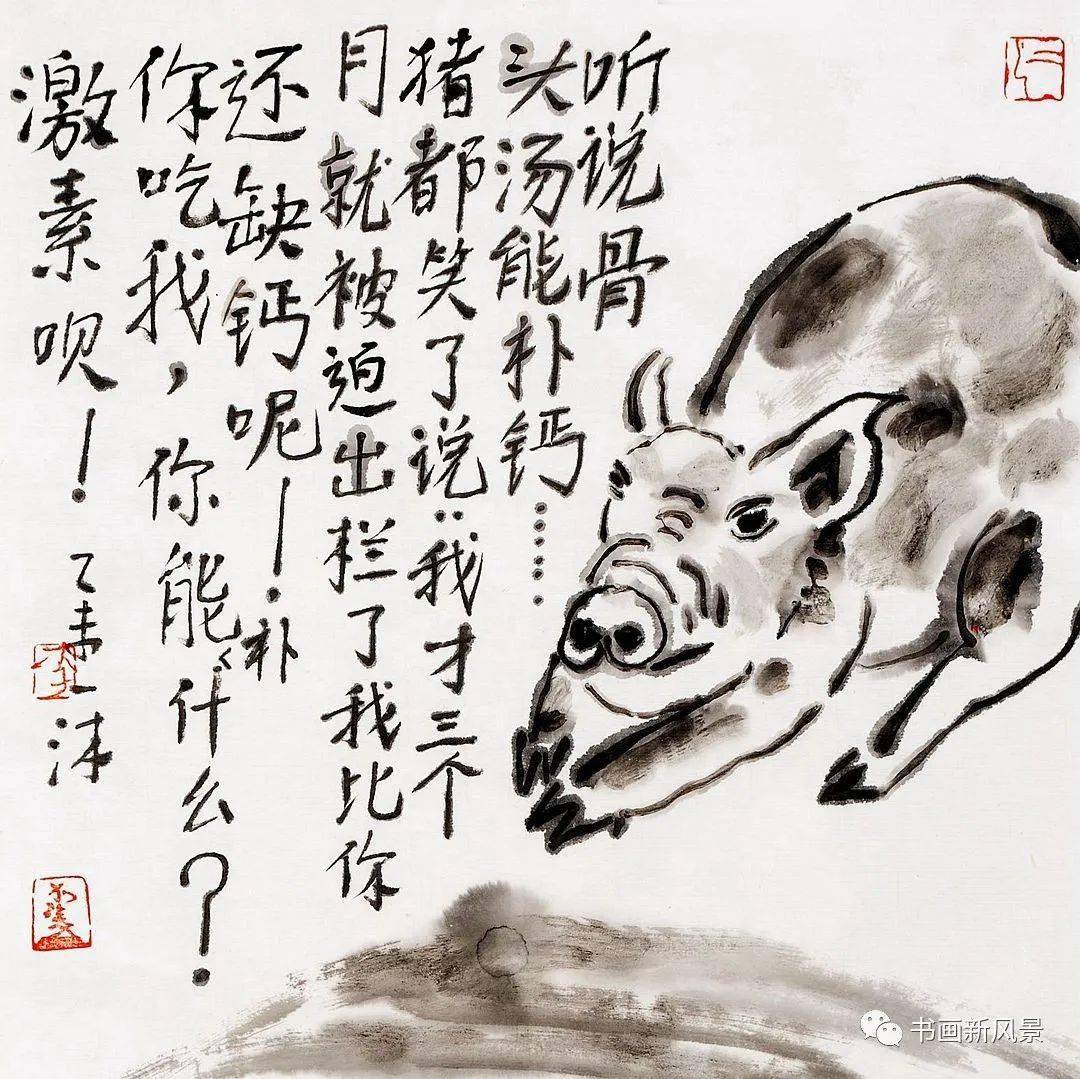 听说骨
头汤能朴钙……
猪都笑了说:我才三个
月就被迫出栏了我比你
还缺钙呢!
你吃我,你能朴什么?
激素呗!
书画新风景